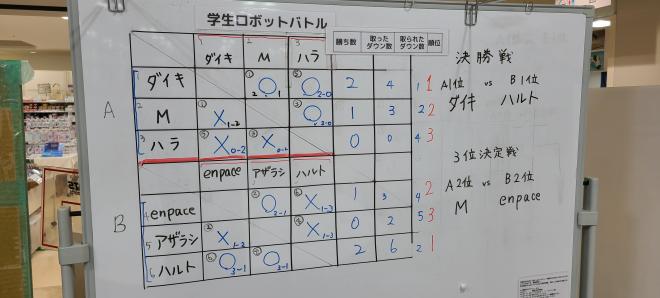 学生ロボットバトル
勝ち数 取ったダウン数 取られたダウン数 順位
1 ダイキ 2 M 3 ハラ
A
1 ダイキ ① 2 ○ 1 ○ 2-0 2 4 1 1
2 M ① × 1-2 ③ ○ 2-0 1 3 2 2
3 ハラ × 0-2 ③ × 0-2 0 0 4 3
enpace アザラシ ハルト
B
4 enpace ○ 2-1 × 1-3 1 3 4 2
5 アザラシ × 1-2 × 1-3 0 2 5 3
6 ハルト ○ 3-1 ○ 3-1 2 6 2 1
決勝戦
A1位 vs B1位
ダイキ ハルト
3位決定戦
A2位 vs B2位
M enpace